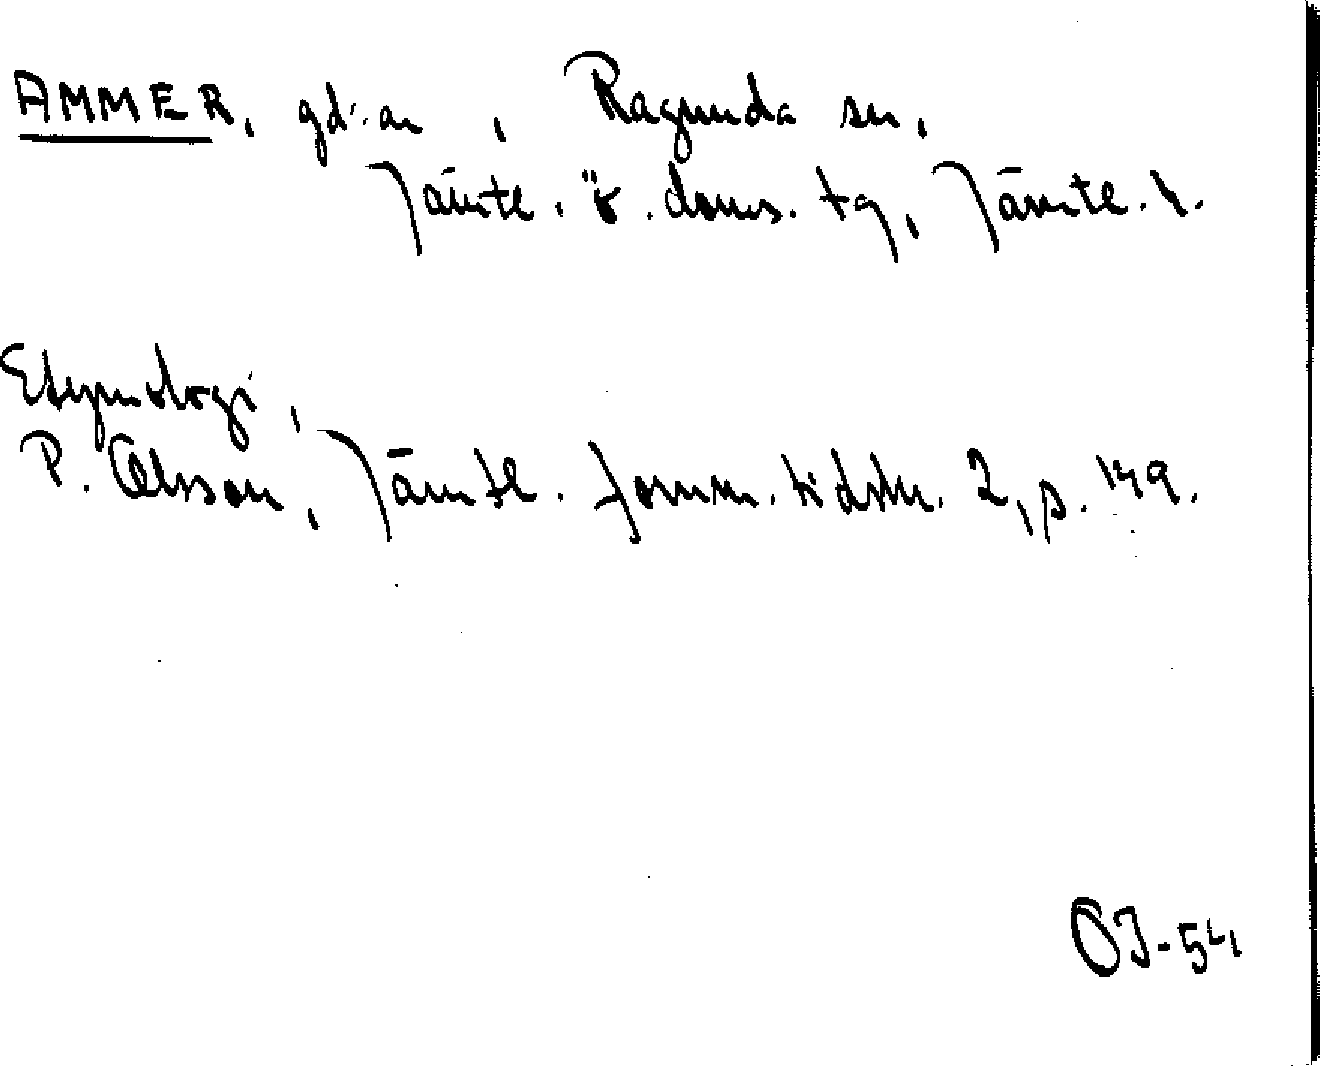 AMMER, gd:ar, Ragunda sn,
Jämtl. ö. doms. tg, Jämtl. l.
Etymologi,
P. Olsson, Jämtl. fornm. tidskr. 2, s. 149.
OJ-54